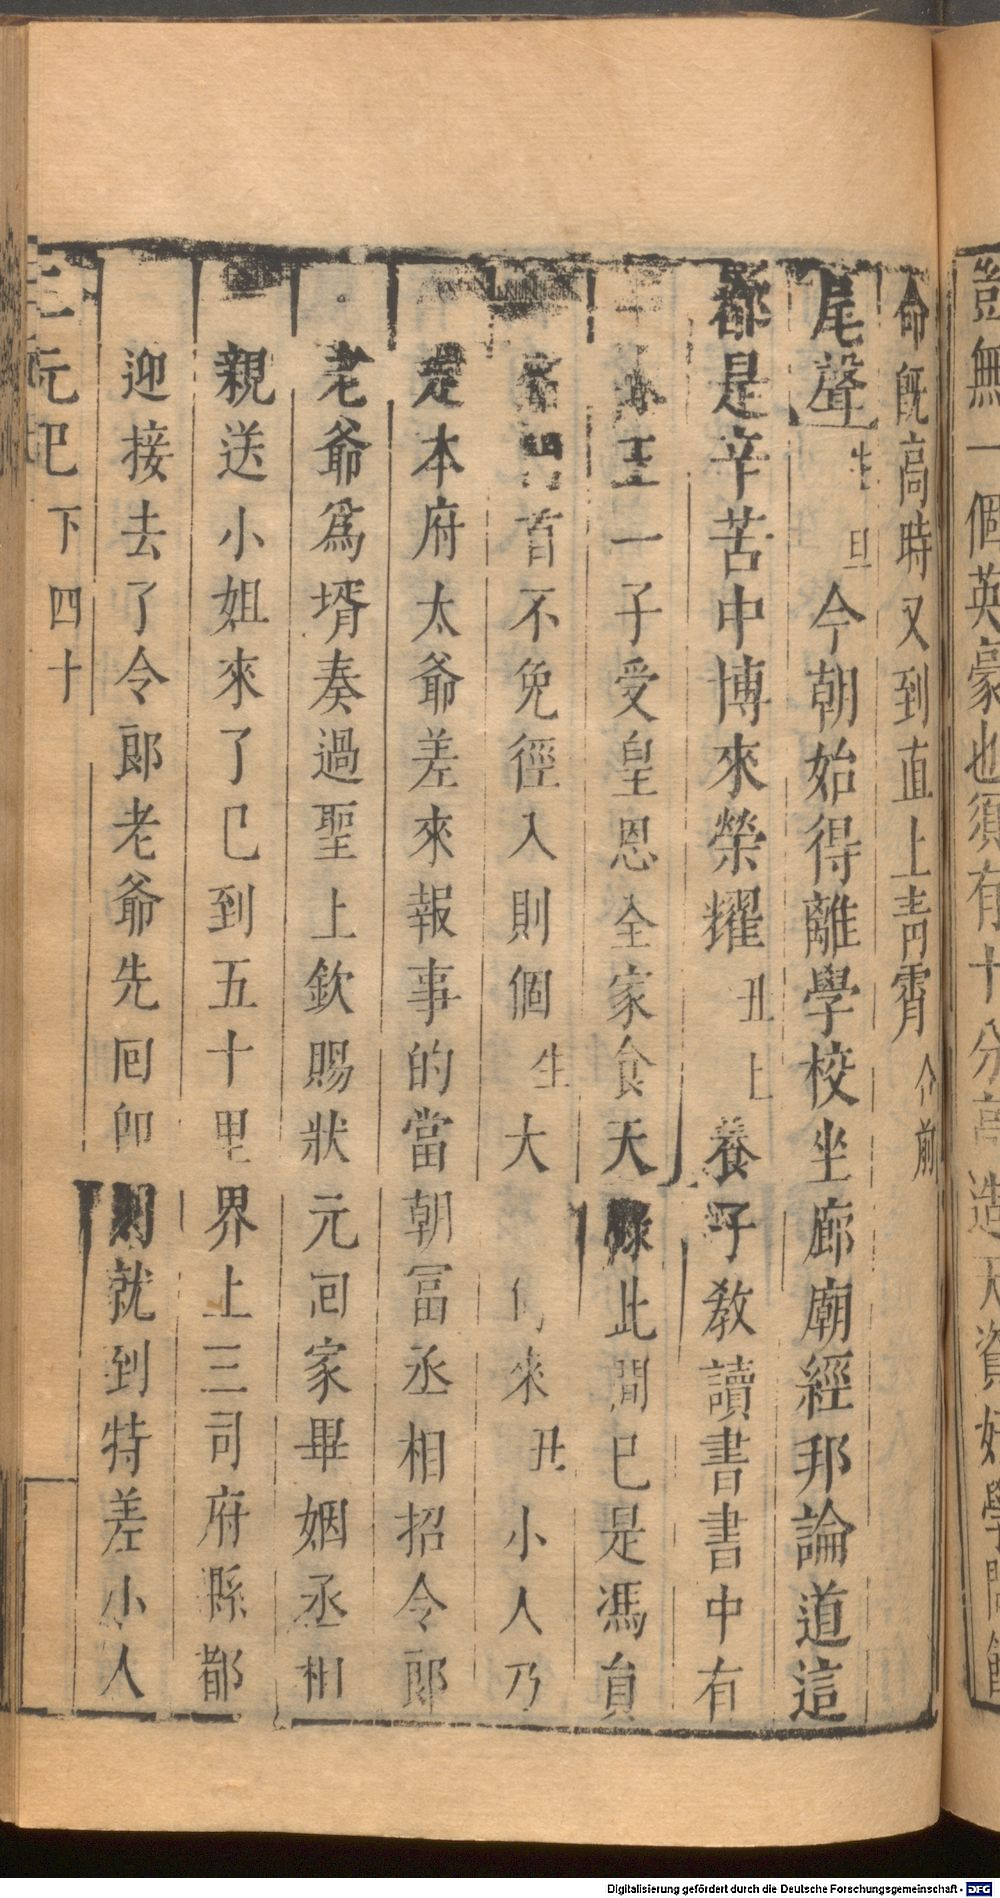 豈無一個英豪也須有十分高造天資好學問
命既高時又到直上青霄介前
尾聲生旦今朝始得離學校坐廊廟經邦論道這
都是辛苦中博來榮耀丑上養子教讀書書中有
玉一子受皇恩全家食天祿此間已是馮員
首不免徑入則個生大何來丑小人乃
是本府太爺差來報事的當朝富丞相招令郎
老爺爲壻奏過聖上欽賜狀元囘家畢姻丞相
親送小姐來了已到五十里界上三司府縣都
迎接去了令郎老爺先囘卽刻就到特差小人
三元記下四十
Digitalisierung gefördert durch die Deutsche Forschungsgemeinschaft - DFG